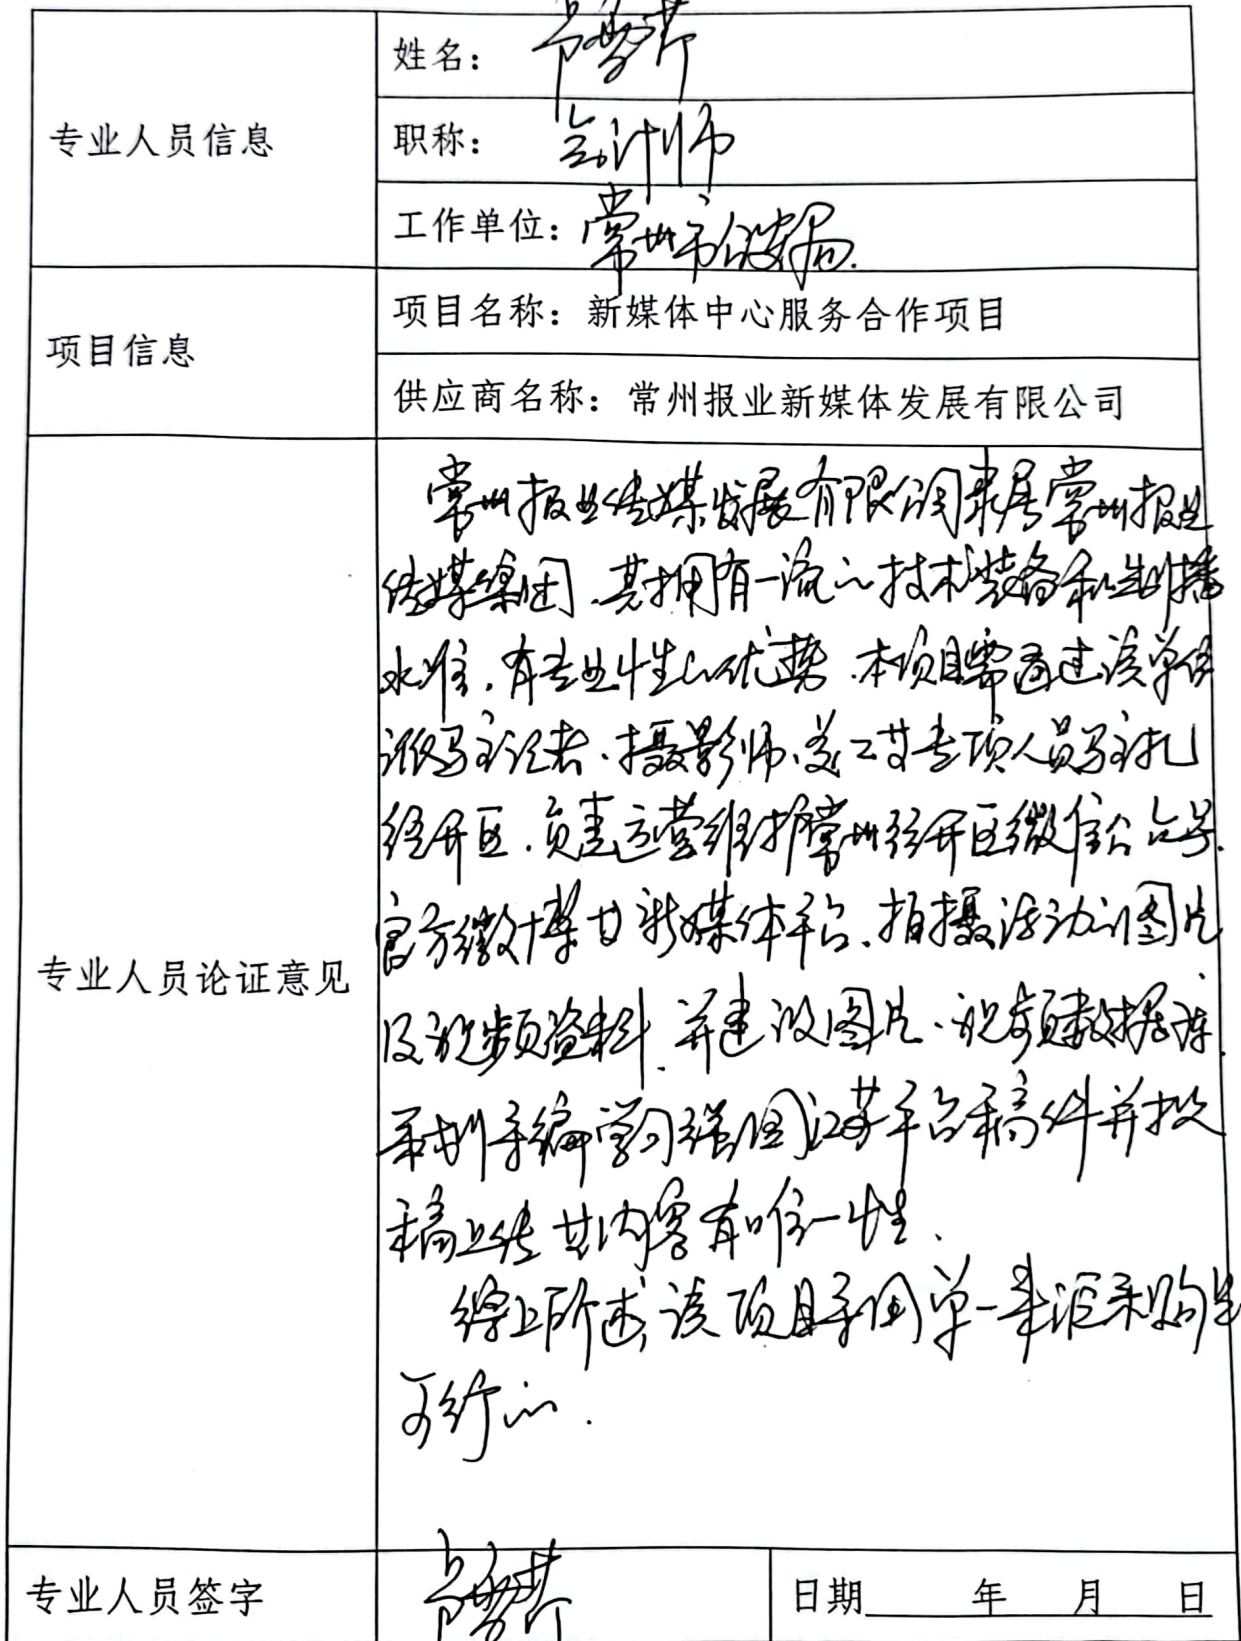 姓名:
职称: 会计师
专业人员信息
工作单位: 常州市
项目名称: 新媒体中心服务合作项目
项目信息
供应商名称: 常州报业新媒体发展有限公司
常州报业传媒发展有限公司隶属常州报业
传媒集团、其拥有一流的技术装备和制播
水准,有专业性的优势.本项目需通过该单位
派驻记者、摄影师、美工等专项人员驻扎
经开区,负责运营维护常州经开区微信公众号、
官方微博等新媒体平台、拍摄活动的图片
专业人员论证意见
及视频资料,并建设图片、视频数据库.
采编学习强国江苏平台稿件并投
稿上传其内容有唯一性.
综上所述,该项目采用单一来源采购是
可行的.
专业人员签字
日期 年 月 日